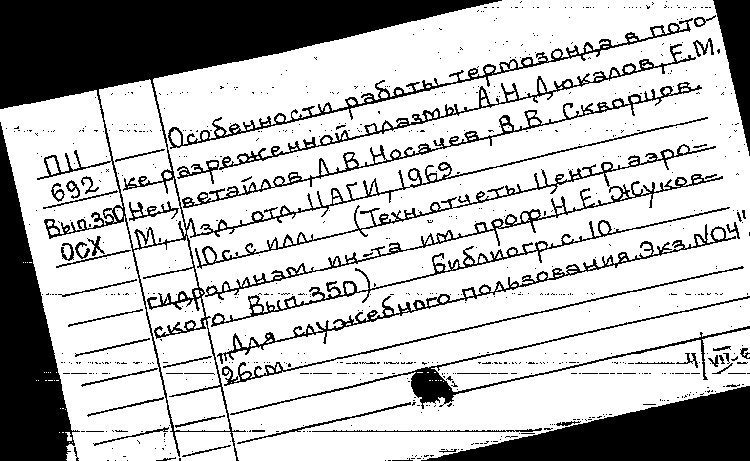 Особенности работы термозонда в пото-
ке разреженной плазмы. А.Н. Дюкалов, Е.М.
Нецветайлов, Л.В. Носачев, В.В. Скворцов.
М., Изд. отд. ЦАГИ, 1969.
10с. с илл. (Техн. отчеты Центр. аэро=
гидродинам. ин=та им. проф. Н.Е. Жуков=
ского. Вып. 350). Библиогр. с. 10.
"Для служебного пользования. Экз. №04".
26см.
П11
692
Вып.350
ОСХ